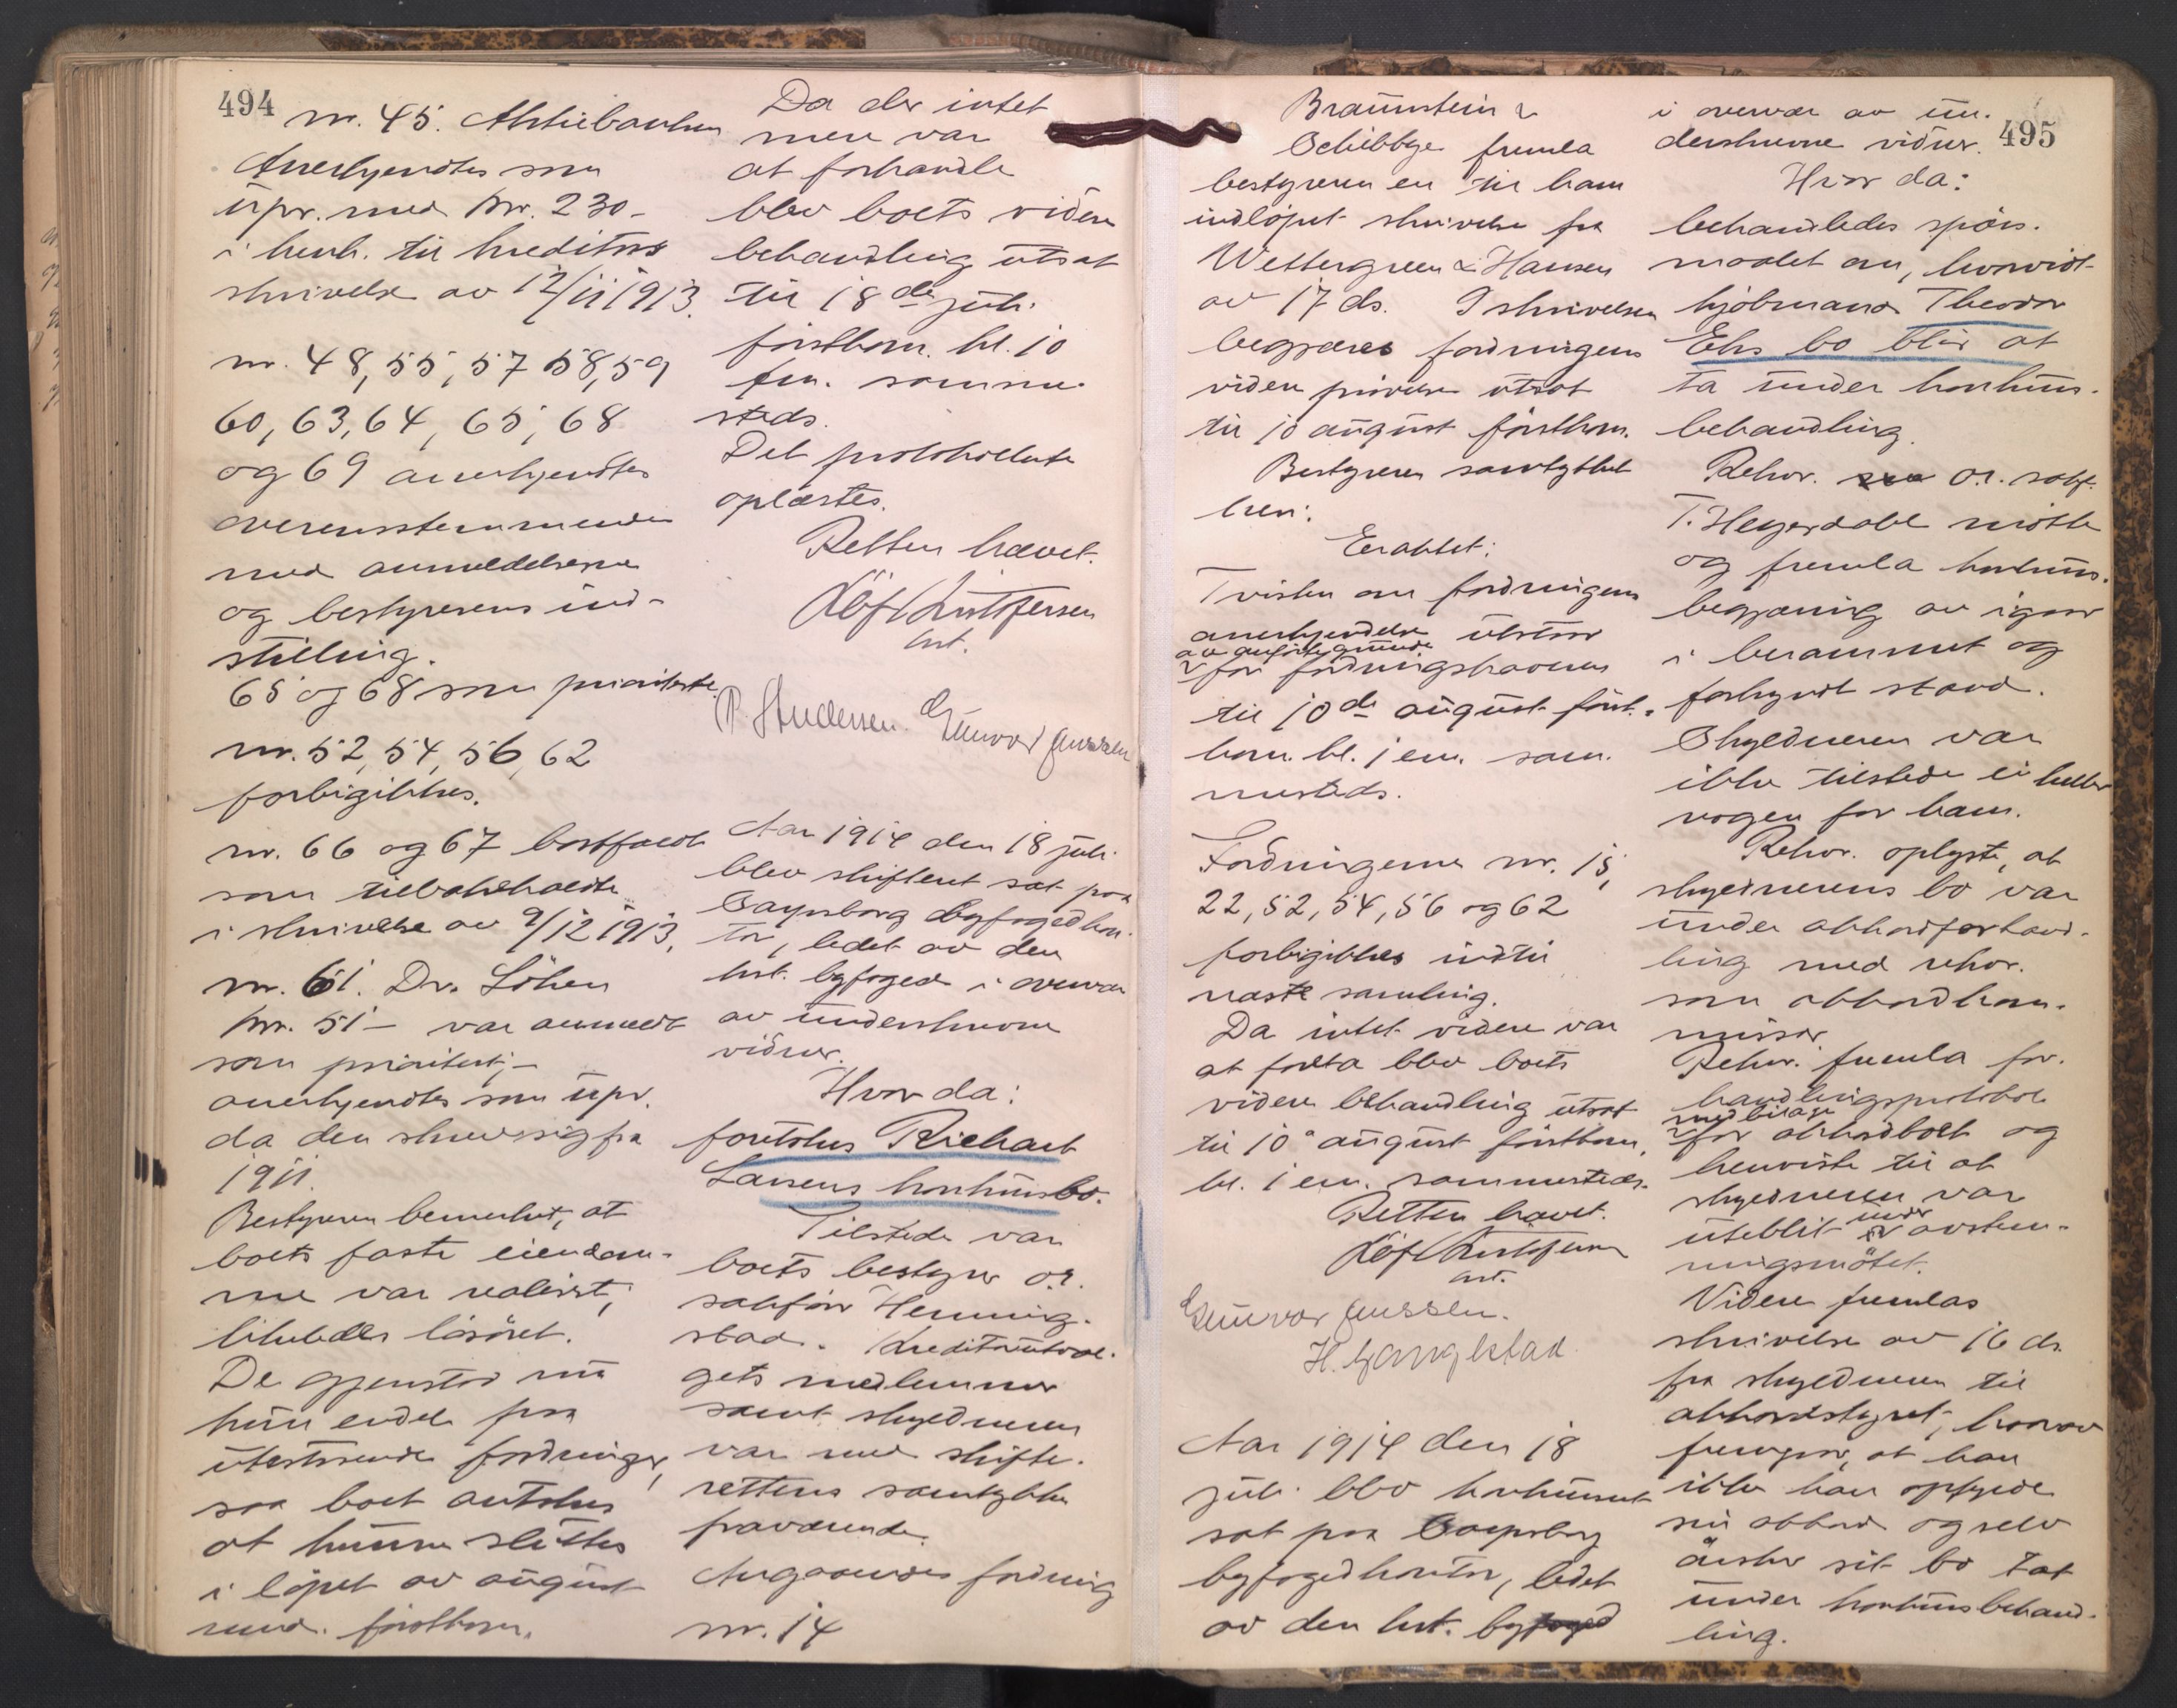 494
nr. 45. Aktiebanken
Anerkjendtes som
upr. med kr. 230-
i henh. til kreditors
skrivelse av 12/11 1913.
nr. 48, 55, 57 58, 59
60, 63, 64, 65, 68
og 69 anerkjendtes
overensstemmende
med anmeldelserne
og bestyrerens ind-
stilling.
65 og 68 som prioriterte.
nr. 52, 54, 56, 62
forbigikkes.
nr. 66 og 67 bortfaldt
som tilbakekaldte
i skrivelse av 9/12 1913.
nr. 61. Dr. Löken
kr. 51- var anmeldt
som prioritert,-
anerkjendtes som upr.
da den skrev sig fra
1911.
Bestyreren bemerket, at
boets faste eiendom-
me var realisert;
likeledes lösöret.
De gjenstod nu
kun endel fra
utestaaende fordringer,
saa boet antokes
at kunne sluttes
i löpet av august
mnd. förstkom.
Da der intet
mere var
at forhandle
blev boets videre
behandling utsat
til 18de juli
förstkom. kl. 10
fm. samme-
steds.
Det protokollerte
oplæstes.
Retten hævet.
Kristoffersen
kst.
P. Andersen. Gunvor Janssen
Aar 1914 den 18 juli
blev skifteret sat paa
Sarpsborg byfogedkon-
tor, ledet av den
kst. byfoged i overvær
av underskrevne
vidner.
Hvor da:
foretokes Richart
Larsens konkursbo.
Tilstede var
boets bestyrer o.r.
sakförer Henning-
stad. Kreditorutval-
gets medlemmer
samt skyldneren
var med skifte-
rettens samtykke
fraværende.
Angaaende fordring
nr. 14
Braunstein &
Schibbye fremla
bestyreren en til ham
indlöpet skrivelse fra
Wettergreen & Hansen
av 17 ds. I skrivelsen
begjæres fordringens
videre prövelse utsat
til 10 august förstkom.
Bestyreren samtykket
heri.
Eraktet:
Tvisten om fordringens
anerkjendelse utstaar
av anförte grunde
for fordringshaveren
til 10de august först-
kom. kl. 1 em. sam-
mesteds.
Fordringerne nr. 15,
22, 52, 54, 56 og 62
forbigikkes indtil
næste samling.
Da intet videre var
at foreta blev boets
videre behandling utsat
til 10de august förstkom.
kl. 1 em. sammesteds.
Retten hævet.
Kristoffersen
kst.
Gunvor Janssen.
H.
Aar 1914 den 18
juli blev konkursret
sat paa Sarpsborg
byfogedkontor, ledet
av den kst. byfoged
495
i overvær av un-
derskrevne vidner.
Hvor da:
behandledes spörs-
maalet om, hvorvidt
kjöbmand Theodor
Eks bo blir at
ta under konkurs-
behandling.
Rekv. o.r. sakf.
T. Heyerdahl mötte
og fremla konkurs-
begjæring av igaar
i berammet og
forkyndt stand.
Skyldneren var
ikke tilstede ei heller
nogen for ham.
Rekv. oplyste, at
skyldnerens bo var
under akkordforhand-
ling med rekv.
som akkordkom-
missær.
Rekv. fremla for-
handlingsprotokol
med bilage
for akkordboet og
henviste til at
skyldneren var
uteblit under avstem-
ningsmötet.
Videre fremlas
skrivelse av 16 ds.
fra skyldneren til
akkordstyret, hvorav
fremgaar, at han
ikke kan opfylde
sin akkord og selv
önsker sit bo tat
under konkursbehand-
ling.